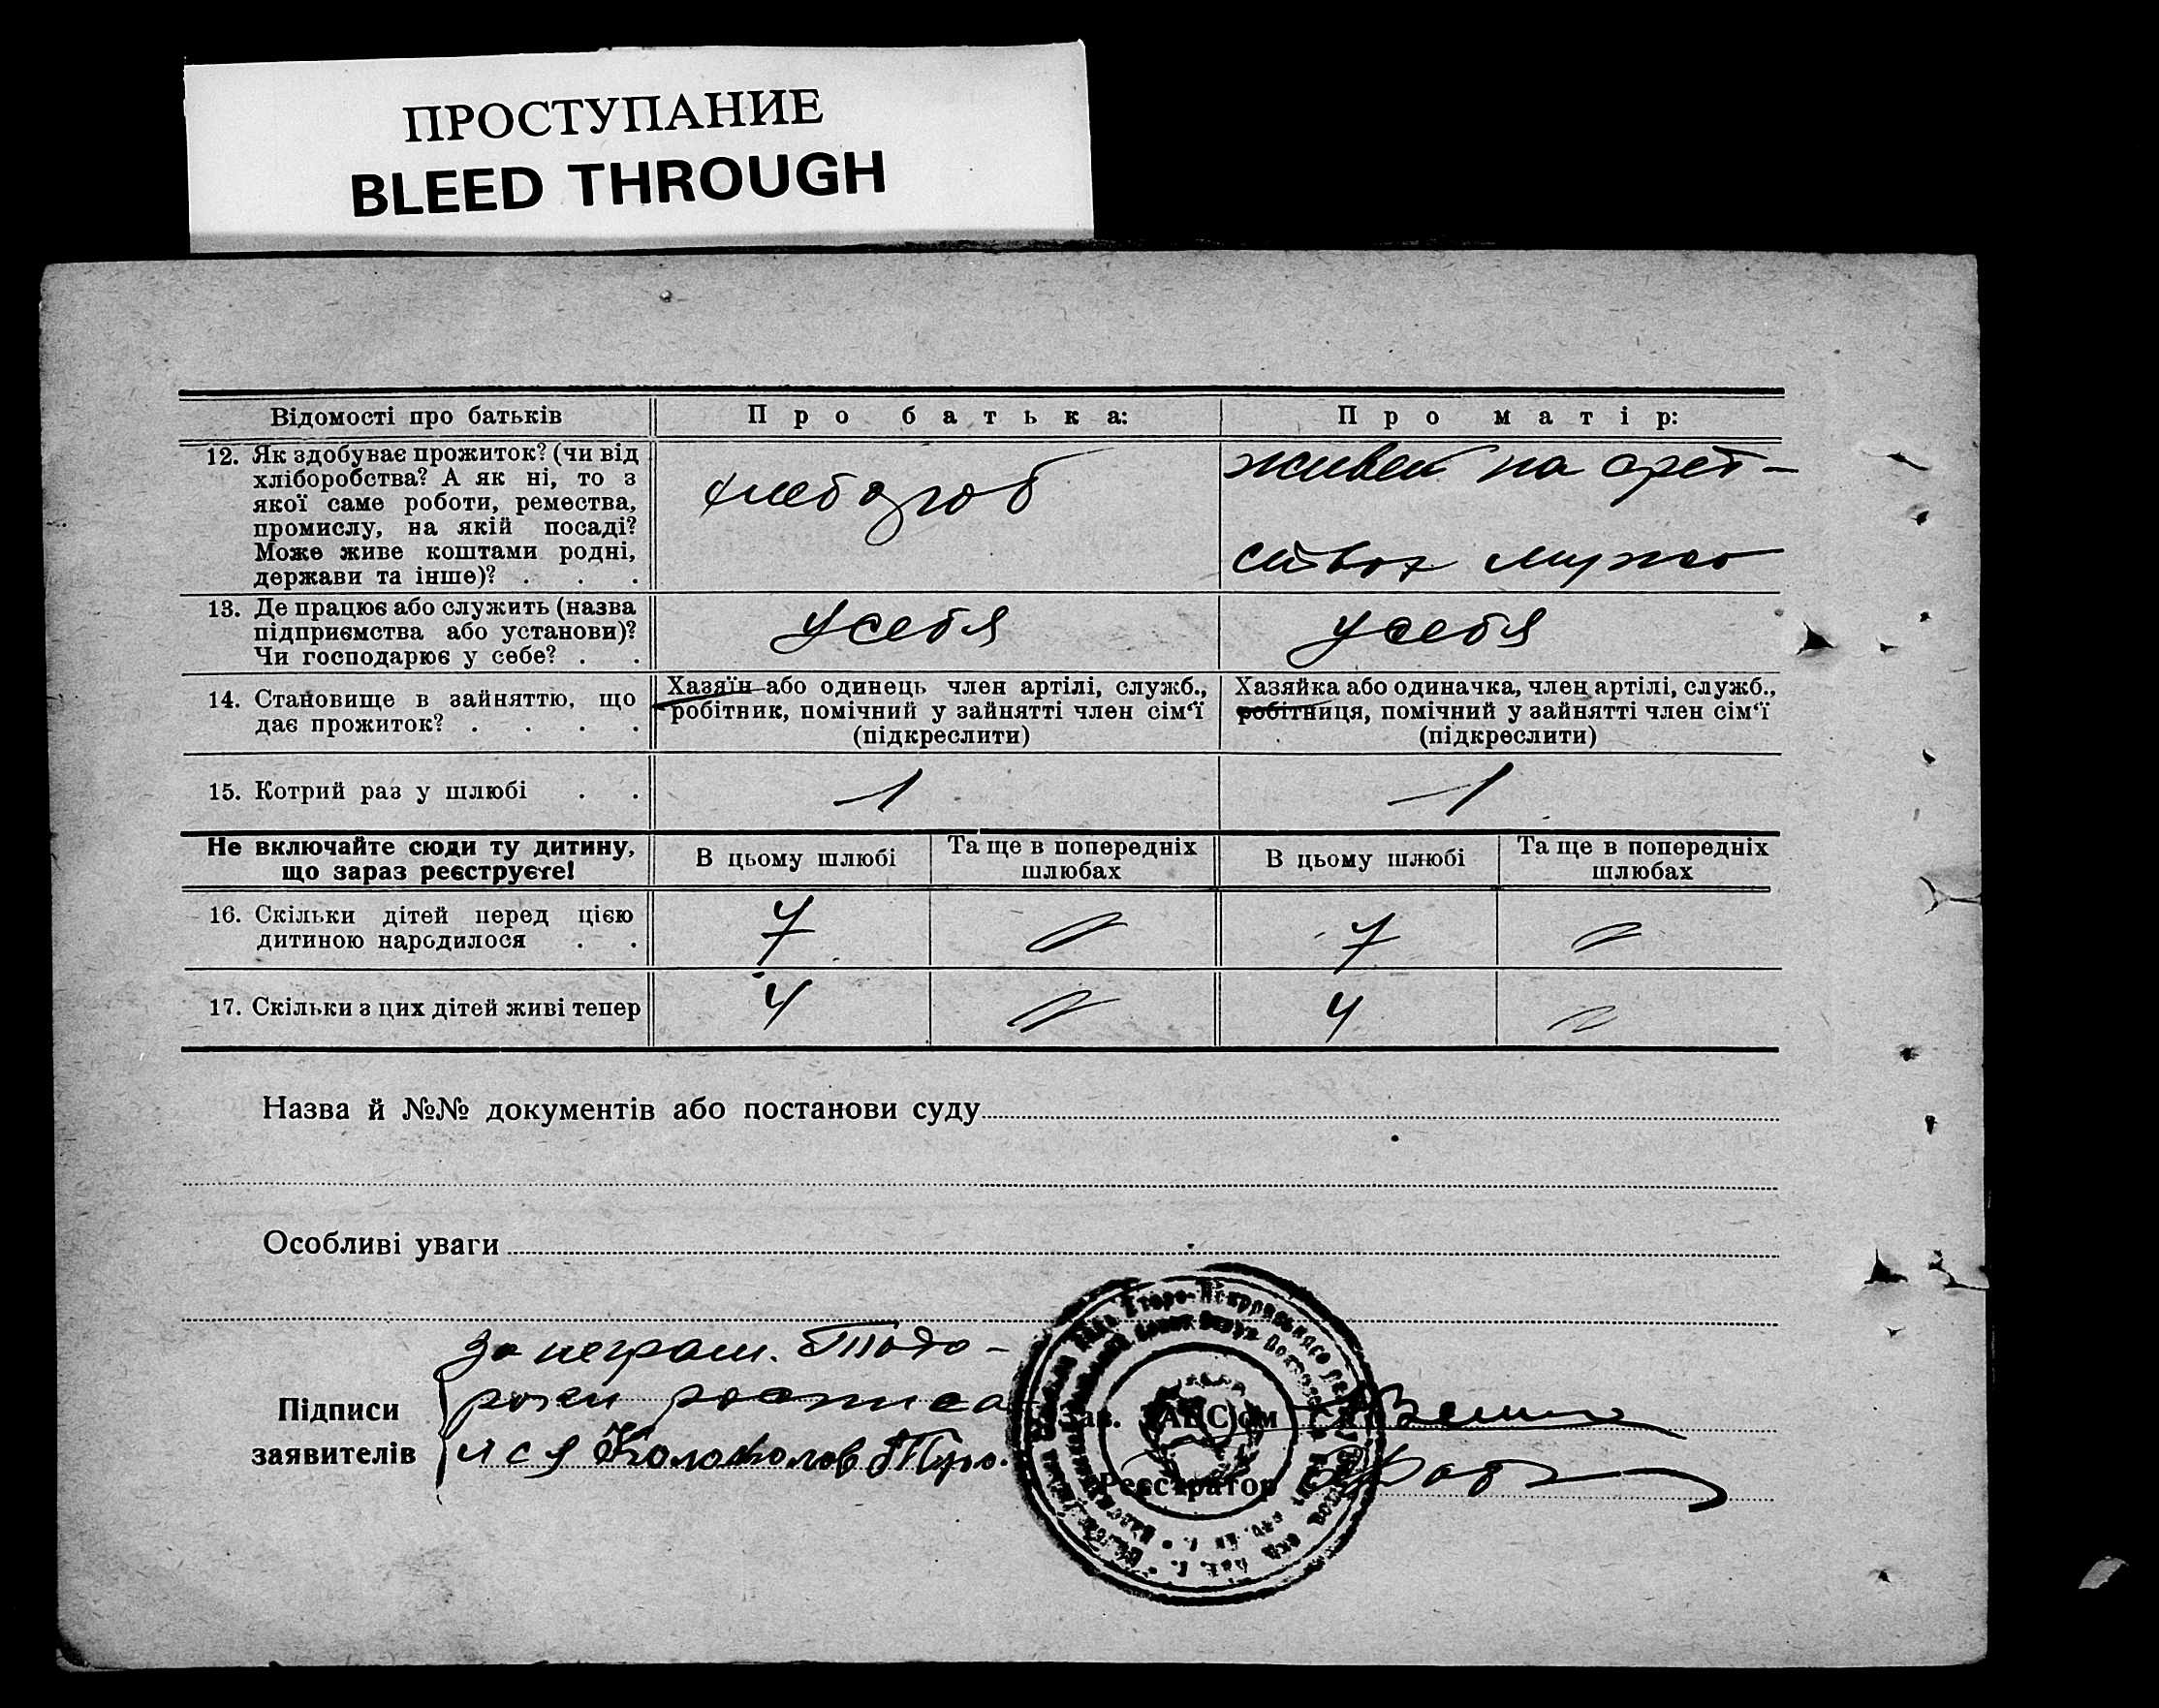 ПРОСТУПАНИЕ
BLEED THROUGH
Відомості про батьків
Про батька:
Про матір:
12. Як здобуває прожиток? (чи від
хліборобства? А як ні, то з
якої саме роботи, ремества,
промислу, на якій посаді?
Може живе коштами родні,
держави та інше)? . . .
хлебороб
живет на сред-
ствах мужа
13. Де працює або служить (назва
підприємства або установи)?
Чи господарює у себе? . .
у себя
у себя
14. Становище в зайняттю, що
дає прожиток? . . . .
Хазяїн або одинець член артілі, служб.,
робітник, помічний у зайнятті член сім‘ї
(підкреслити)
Хазяйка або одиначка, член артілі, служб.,
робітниця, помічний у зайнятті член сім‘ї
(підкреслити)
15. Котрий раз у шлюбі . .
1
1
Не включайте сюди ту дитину,
що зараз реєструєте!
В цьому шлюбі
Та ще в попередніх
шлюбах
В цьому шлюбі
Та ще в попередніх
шлюбах
16. Скільки дітей перед цією
дитиною народилося . .
7
7
17. Скільки з цих дітей живі тепер
4
4
Назва й №№ документів або постанови суду
Особливі уваги
Підписи
заявителів
за неграм. Тодо-
росы росписа
лся Колоколов
Зав. ЗАГС‘ом
Реєстратор